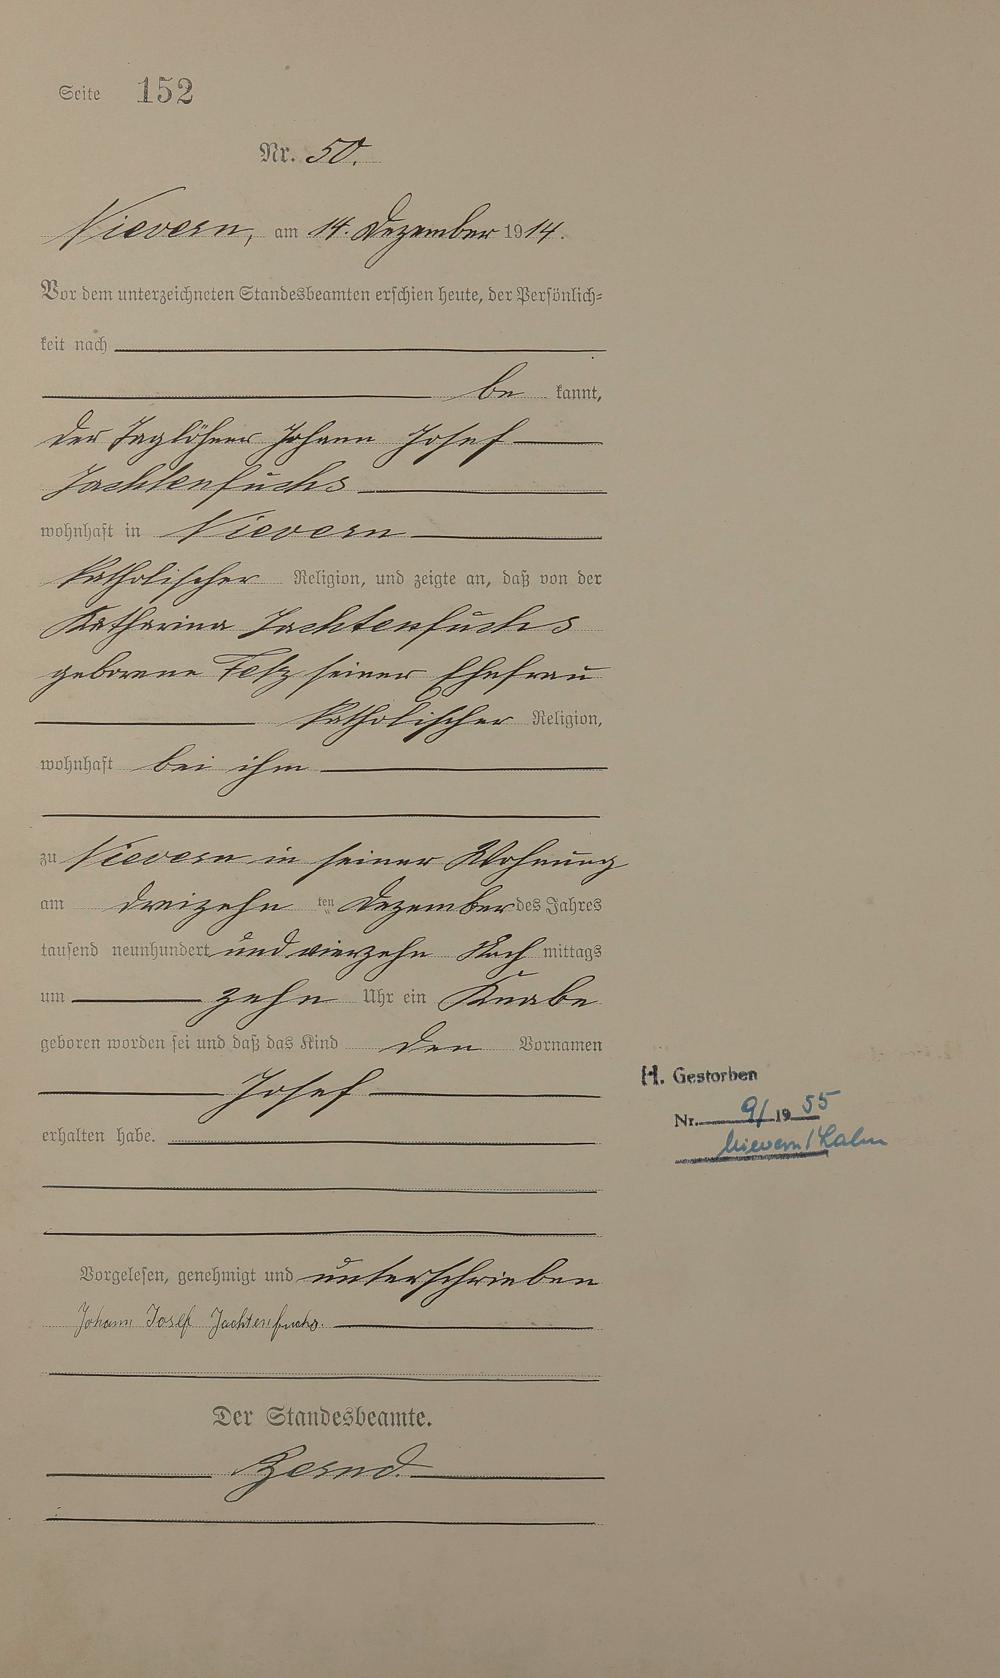 Seite 152
Nr. 50.
Nievern, am 14. Dezember 1914.
Vor dem unterzeichneten Standesbeamten erschien heute, der Persönlich-
keit nach
be kannt,
der Taglöhner Johann Josef
Jachtenfuchs
wohnhaft in Nievern
katholischer Religion, und zeigte an, daß von der
Katharina Jachtenfuchs
geborene seiner Ehefrau
katholischer Religion,
wohnhaft bei ihm
zu Nievern in seiner Wohnung
am dreizehn ten Dezember des Jahres
tausend neunhundert und vierzehn Nach mittags
um zehn Uhr ein Knabe
geboren worden sei und daß das Kind den Vornamen
Josef
erhalten habe.
H. Gestorben
Nr. 9/1955
Nievern/Lahn
Vorgelesen, genehmigt und unterschrieben
Johann Josef Jachtenfuchs.
Der Standesbeamte.